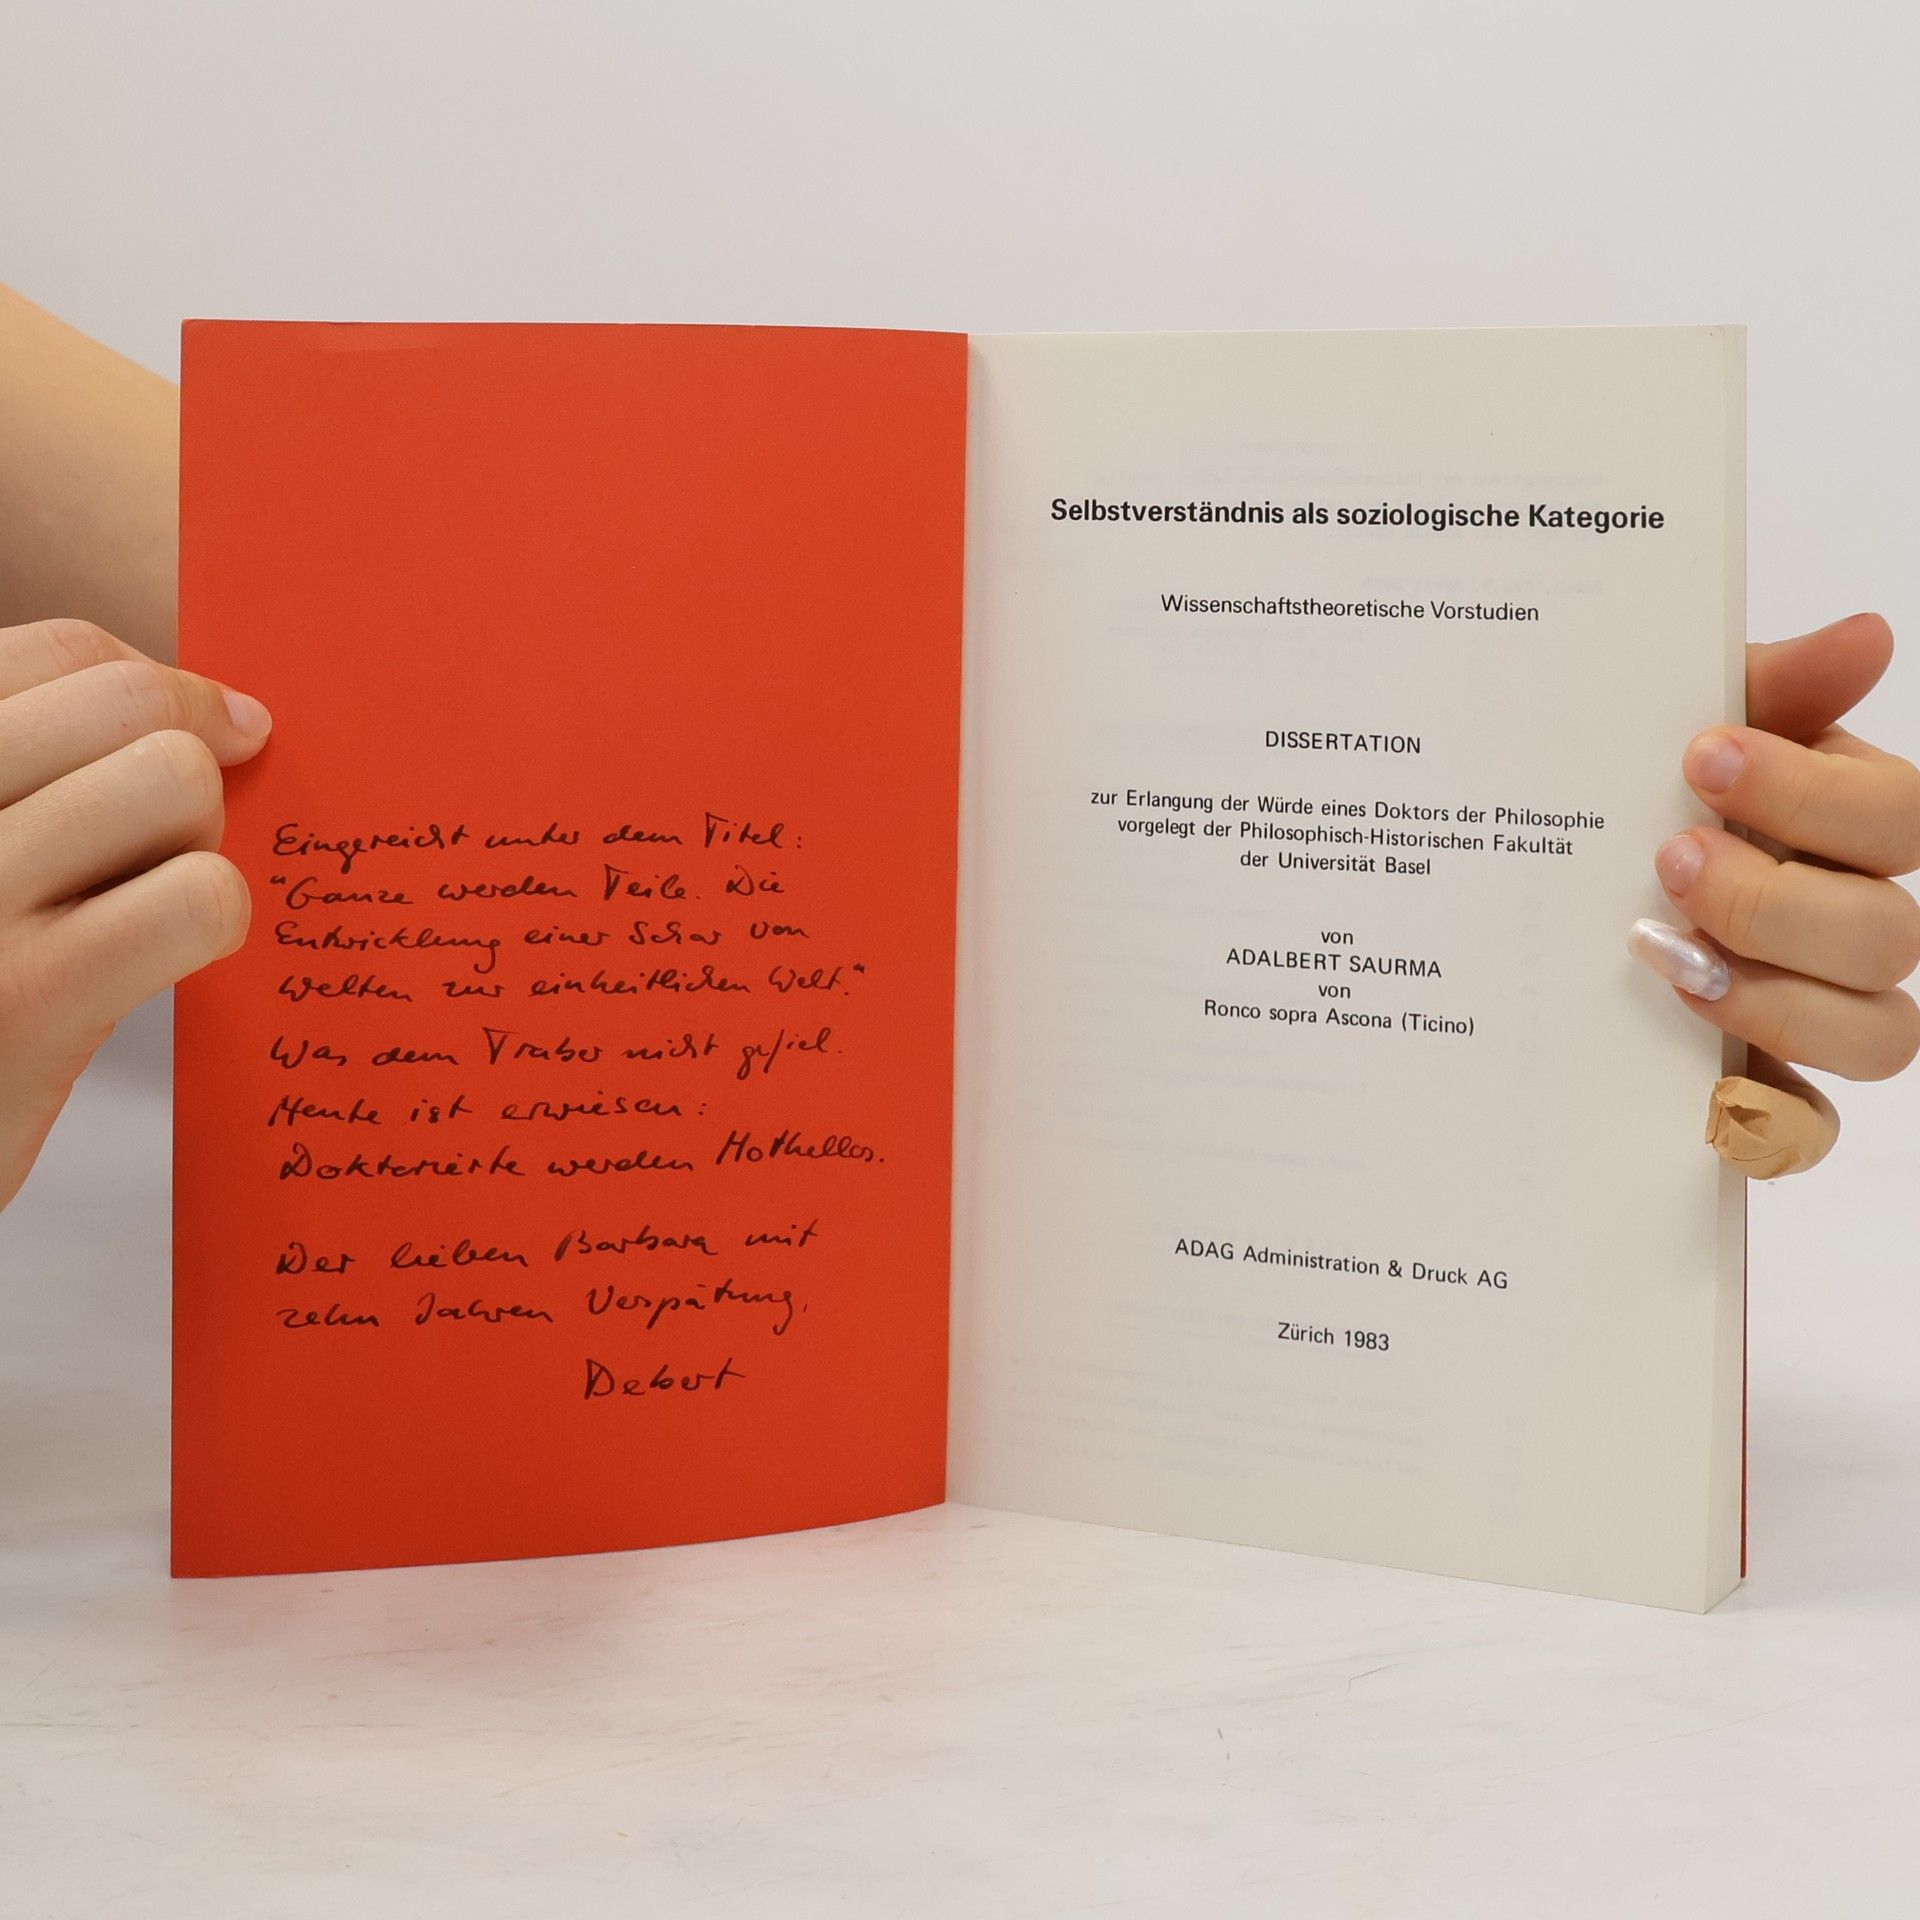 Eingereicht unter dem Titel:
"Ganze werden Teile. Die
Entwicklung einer Schar von
Welten zur einheitlichen Welt."
Was dem Traber nicht gefiel.
Heute ist erwiesen:
Doktorierte werden
Der lieben Barbara mit
zehn Jahren Verspätung,
Debert
Selbstverständnis als soziologische Kategorie
Wissenschaftstheoretische Vorstudien
DISSERTATION
zur Erlangung der Würde eines Doktors der Philosophie
vorgelegt der Philosophisch-Historischen Fakultät
der Universität Basel
von
ADALBERT SAURMA
von
Ronco sopra Ascona (Ticino)
ADAG Administration & Druck AG
Zürich 1983